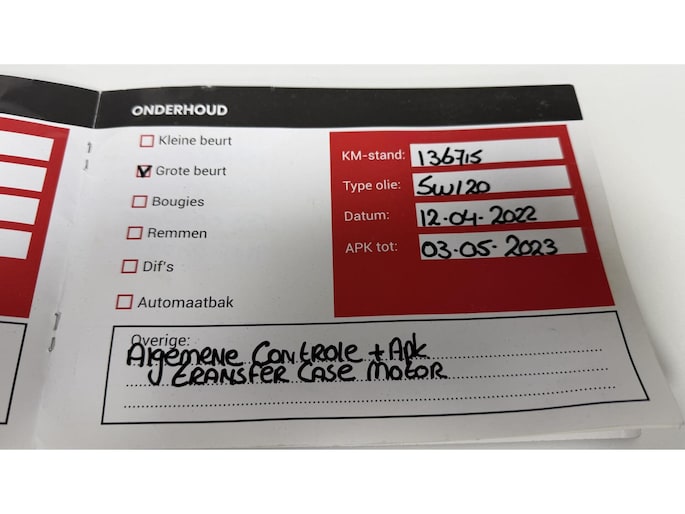 ONDERHOUD
Kleine beurt
Grote beurt
Bougies
Remmen
Dif's
Automaatbak
KM-stand: 136715
Type olie: 5W120
Datum: 12-04-2022
APK tot: 03-05-2023
Overige:
Algemene Controle + Apk
transfer case motor